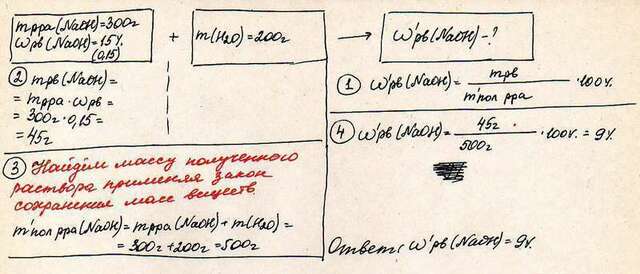 mрра(NaOH)=300г
ωрв(NaOH)=15%
(0,15)
+
m(H2O)=200г
ω'рв(NaOH)-?
② mрв(NaOH)=
= mрра·ωрв=
= 300г·0,15=
= 45г
① ω'рв(NaOH)= mрв / m'пол рра ·100%
③ Найдём массу полученного
раствора применяя закон
сохранения масс веществ.
m'пол рра(NaOH)= mрра(NaOH)+ m(H2O)=
= 300г+200г=500г
④ ω'рв(NaOH)= 45г / 500г ·100%= 9%
Ответ: ω'рв(NaOH)=9%